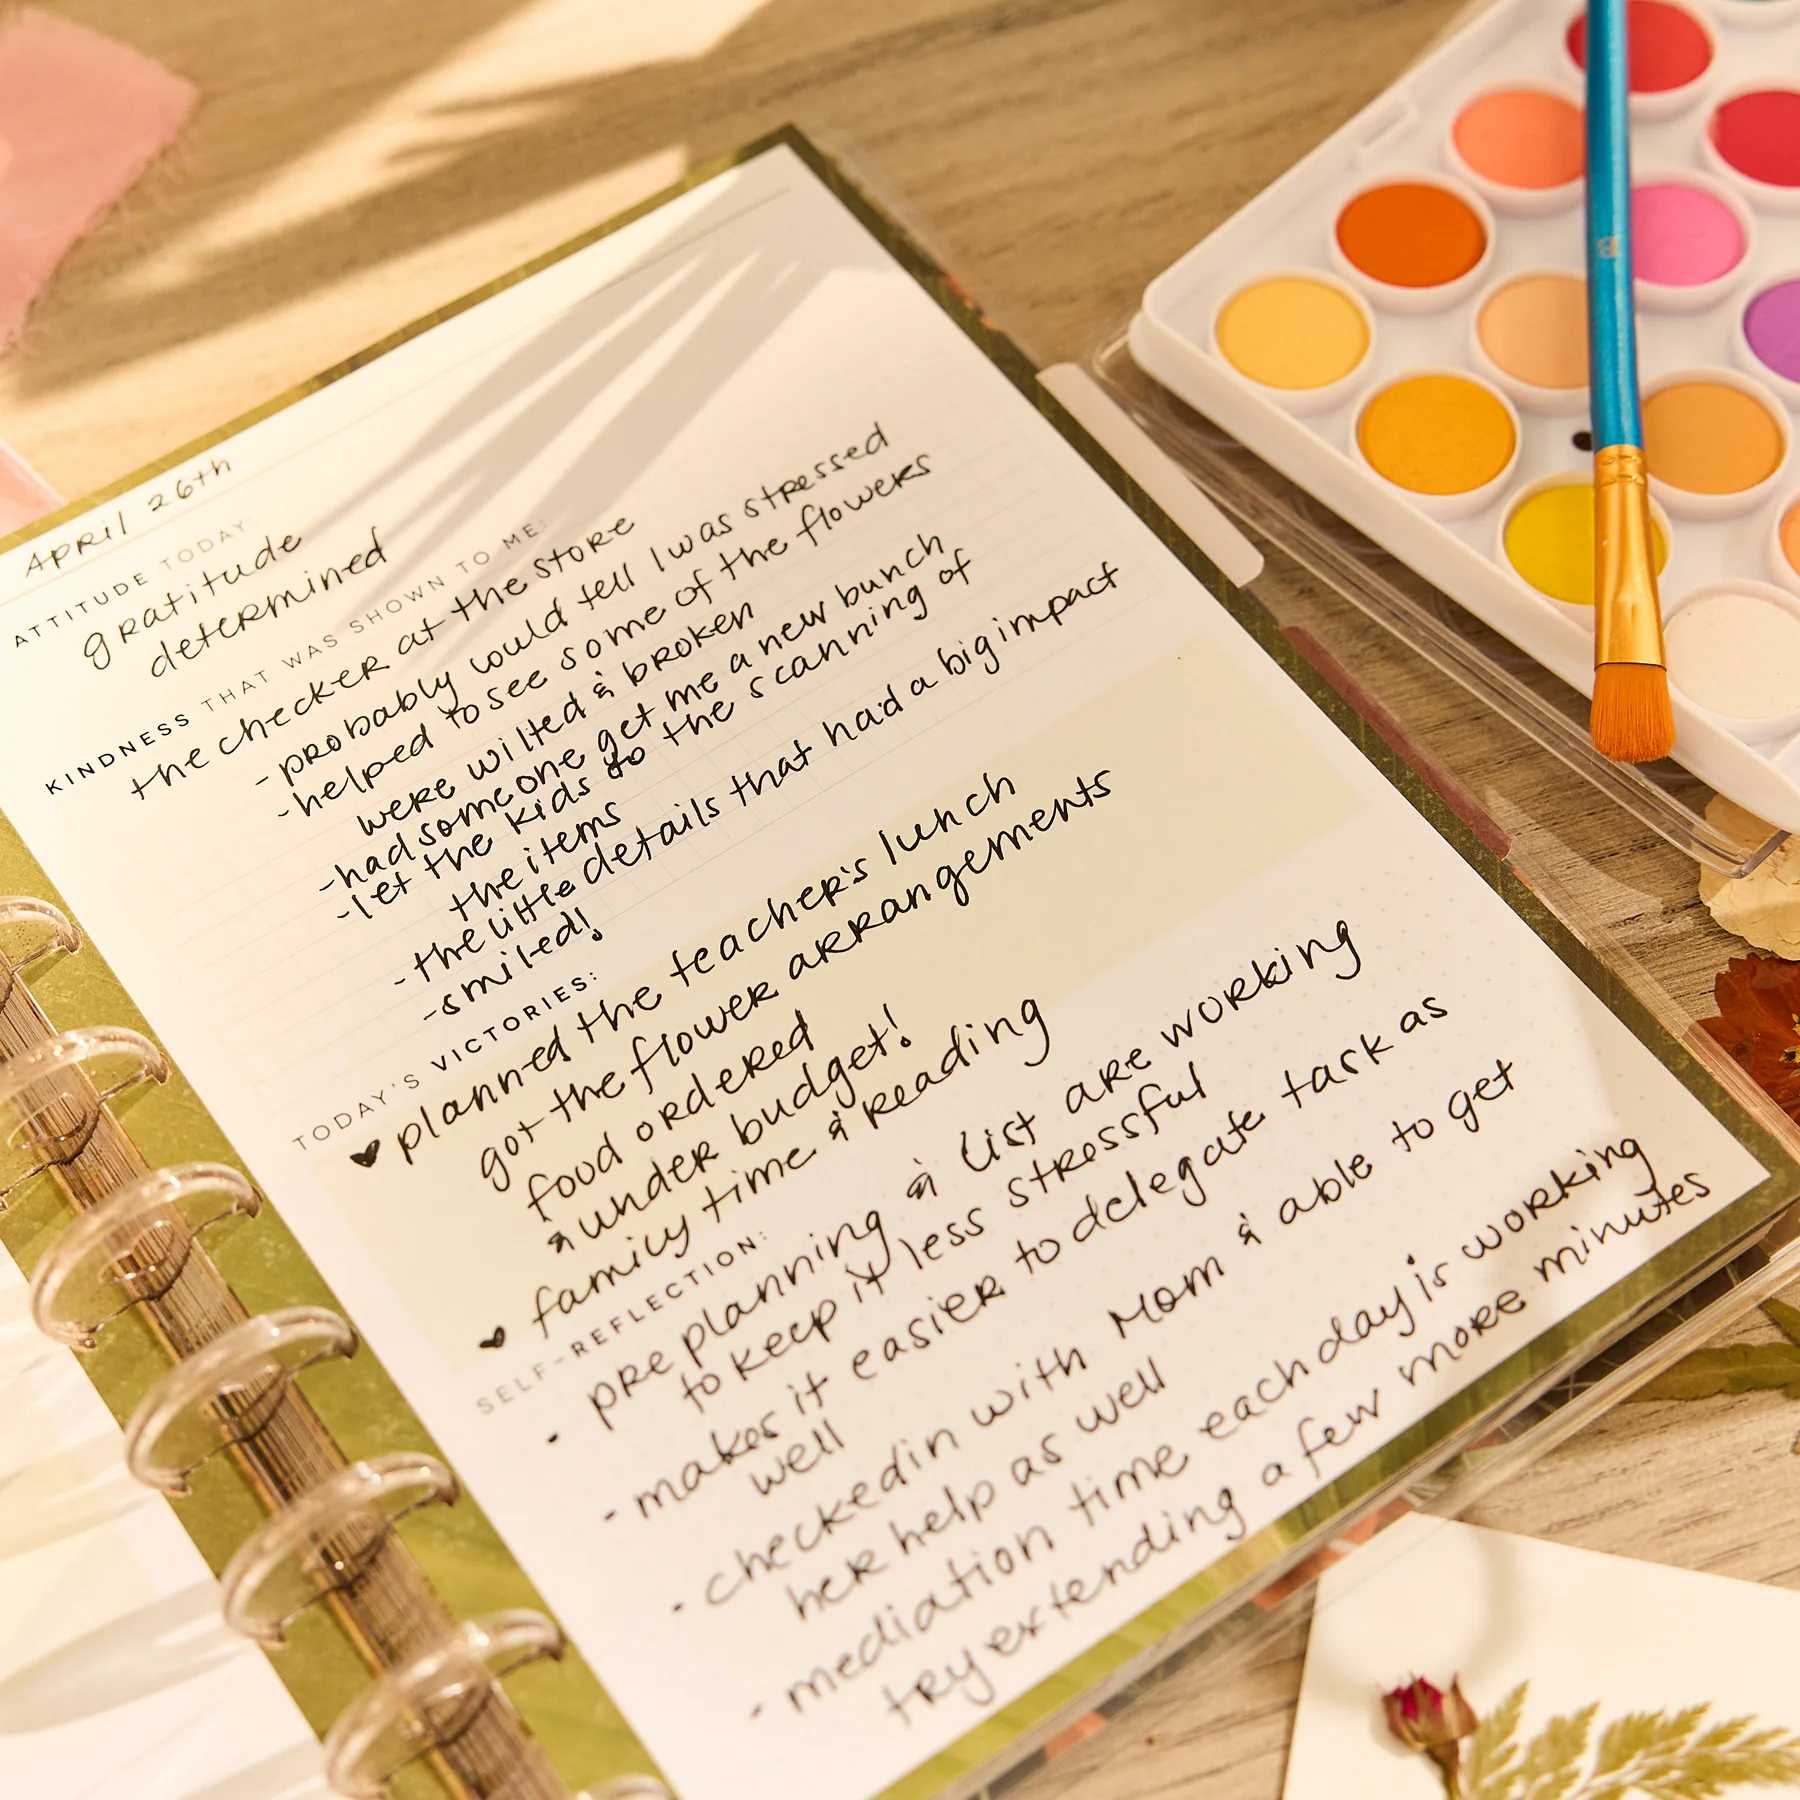 April 26th
ATTITUDE TODAY:
gratitude
determined
KINDNESS THAT WAS SHOWN TO ME:
the checker at the store
- probably could tell I was stressed
- helped to see some of the flowers
were wilted & broken
- had someone get me a new bunch
- let the kids do the scanning of
the items
- the little details that had a big impact
- smiled!
TODAY'S VICTORIES:
♥ planned the teacher's lunch
got the flower arrangements
food ordered
& under budget!
♥ family time & reading
SELF-REFLECTION:
• pre planning & list are working
to keep it less stressful
- makes it easier to delegate task as
well
- checked in with Mom & able to get
her help as well
- mediation time each day is working
try extending a few more minutes
8